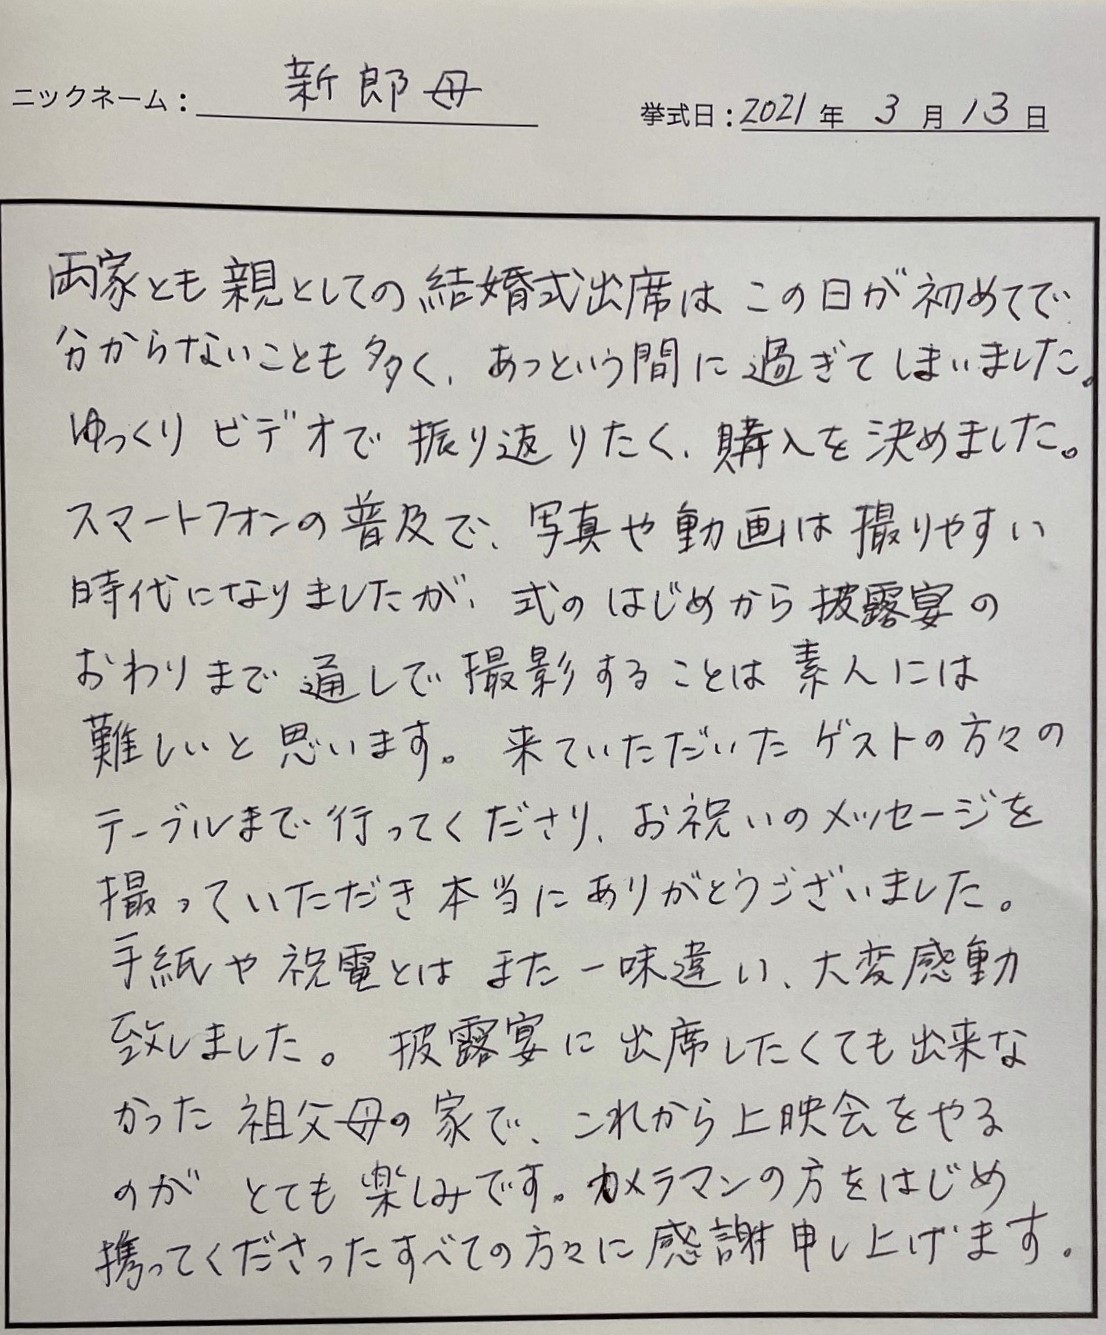 ニックネーム：新郎母
挙式日：2021年3月13日
両家とも親としての結婚式出席はこの日が初めてで
分からないことも多く、あっという間に過ぎてしまいました。
ゆっくりビデオで振り返りたく、購入を決めました。
スマートフォンの普及で、写真や動画は撮りやすい
時代になりましたが、式のはじめから披露宴の
おわりまで通しで撮影することは素人には
難しいと思います。来ていただいたゲストの方々の
テーブルまで行ってくださり、お祝いのメッセージを
撮っていただき本当にありがとうございました。
手紙や祝電とはまた一味違い、大変感動
致しました。披露宴に出席したくても出来な
かった祖父母の家で、これから上映会をやる
のがとても楽しみです。カメラマンの方をはじめ
携ってくださったすべての方々に感謝申し上げます。